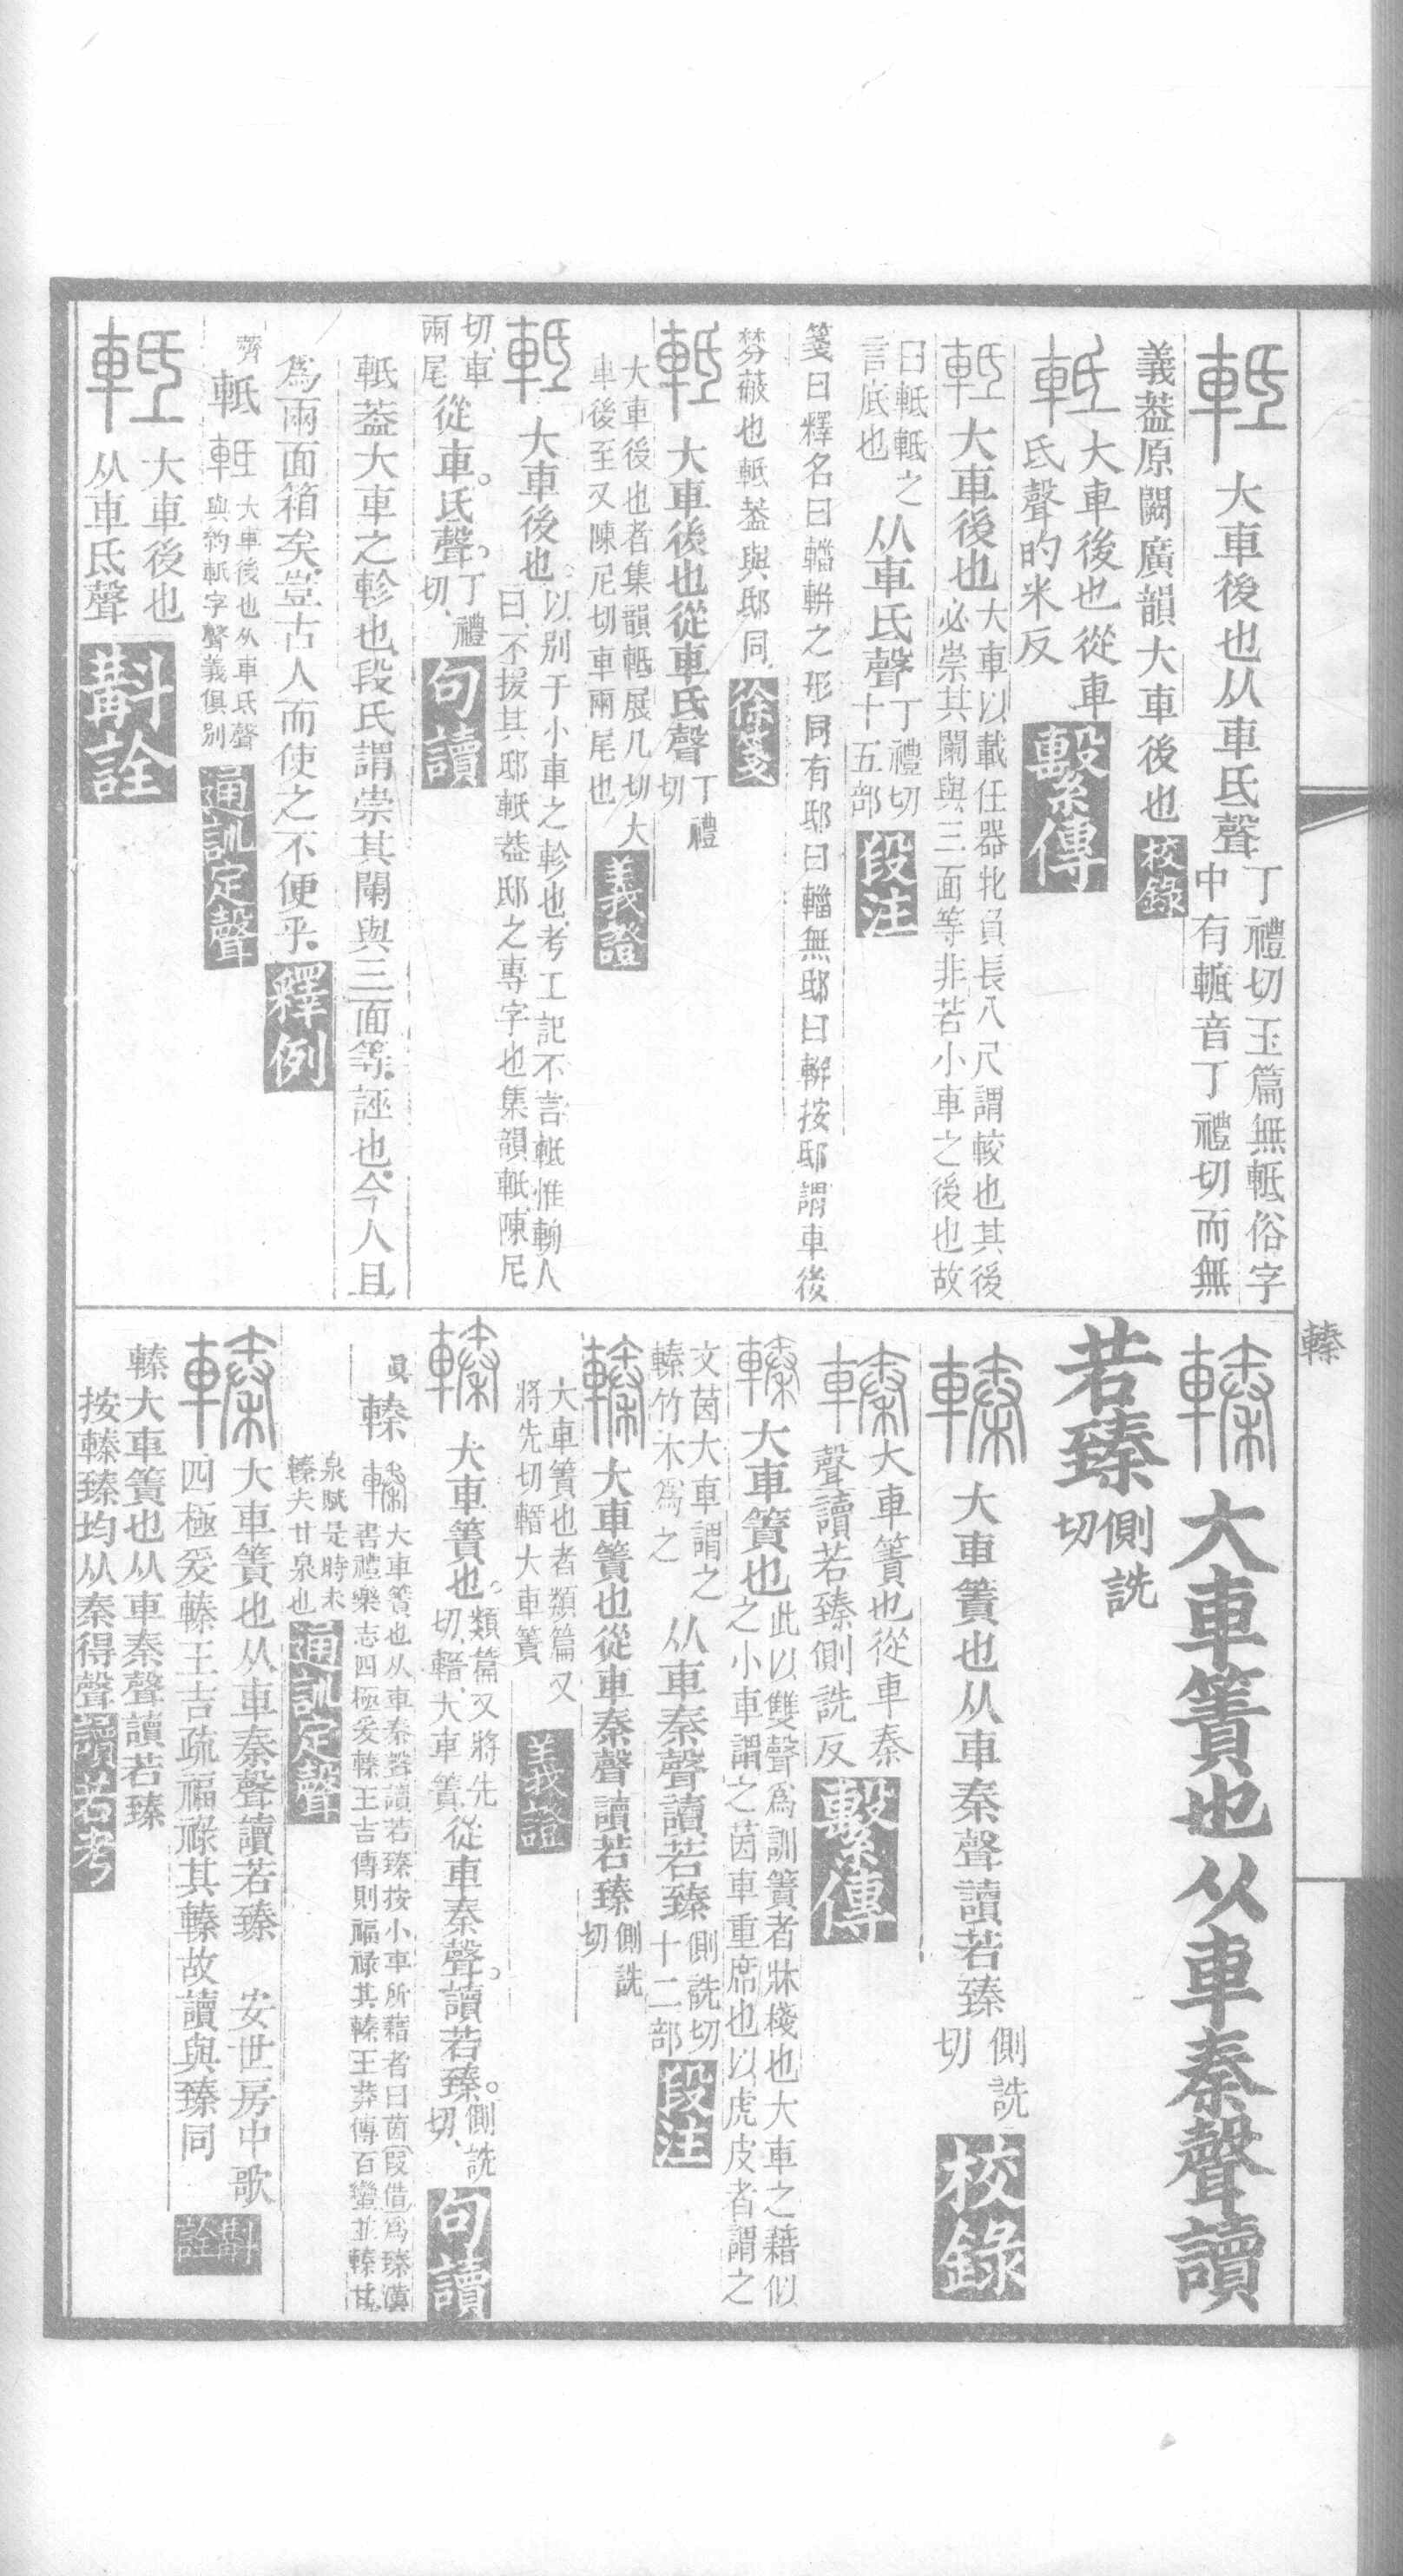 大車後也从車氐聲
丁禮切玉篇無軧俗字
中有軧音丁禮切而無
義葢原闕廣韻大車後也
校錄
大車後也從車
氐聲旳米反
繫傳
大車後也
大車以載任器牝𠬶長八尺謂較也其後
必崇其闌與三面等非若小車之後也故
曰軧軧之
言底也
从車氐聲
丁禮切
十五部
段注
箋曰釋名曰輜軿之形同有邸曰輜無邸曰軿按邸謂車後
棼蔽也軧葢與邸同
徐箋
大車後也從車氐聲
丁禮
切
大車後也者集韻軧展几切大
車後至又陳尼切車兩尾也
義證
大車後也
以别于小車之軫也考工記不言軧惟輈人
曰不援其邸軧葢邸之專字也集韻軧陳尼
切車
兩尾
從車氐聲
丁禮
切
句讀
軧葢大車之軫也段氏謂崇其闌與三面等誣也今人且
爲兩面箱矣豈古人而使之不便乎
釋例
薺
軧
大車後也从車氐聲
與軝字聲義俱别
通訓定聲
大車後也
从車氐聲
斠詮
轃
大車簀也从車秦聲讀
若臻
側詵
切
大車簀也从車秦聲讀若臻
側詵
切
校錄
大車簀也從車秦
聲讀若臻側詵反
繫傳
大車簀也
此以雙聲爲訓簀者牀棧也大車之藉似
之小車謂之茵車重席也以虎皮者謂之
文茵大車謂之
轃竹木爲之
从車秦聲讀若臻
側詵切
十二部
段注
大車簀也從車秦聲讀若臻
側詵
切
大車簀也者類篇又
將先切轃大車簀
義證
大車簀也
類篇又將先
切轃大車簀
從車秦聲讀若臻
側詵
切
句讀
眞
轃
大車簀也从車秦聲讀若臻按小車所藉者曰茵叚借爲臻漢
書禮樂志四極爰轃王吉傳則福祿其轃王莽傳百蠻並轃甘
泉賦是時未
轃夫甘泉也
通訓定聲
大車簀也从車秦聲讀若臻　安世房中歌
四極爰轃王吉疏福祿其轃故讀與臻同
斠詮
轃大車簀也从車秦聲讀若臻
按轃臻均从秦得聲
讀若考